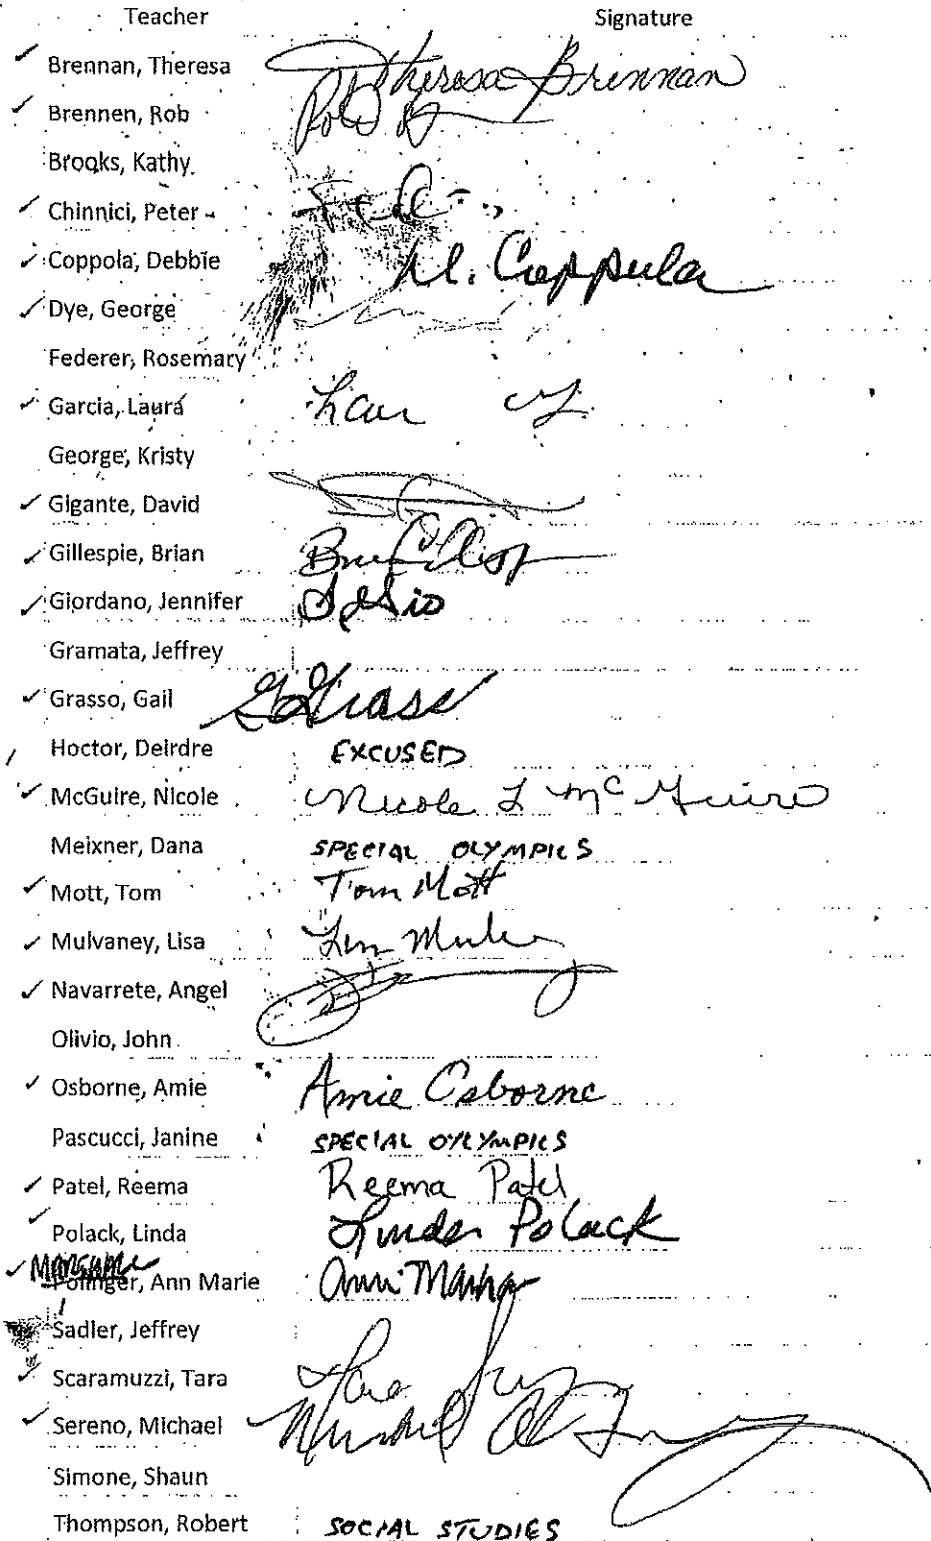 Teacher Signature
Brennan, Theresa Theresa Brennan
Brennen, Rob Rob
Brooks, Kathy
Chinnici, Peter
Coppola, Debbie Coppula
Dye, George
Federer, Rosemary
Garcia, Laura
George, Kristy
Gigante, David
Gillespie, Brian
Giordano, Jennifer
Gramata, Jeffrey
Grasso, Gail
Hoctor, Deirdre EXCUSED
McGuire, Nicole Nicole L McGuire
Meixner, Dana SPECIAL OLYMPICS
Mott, Tom Tom Mott
Mulvaney, Lisa
Navarrete, Angel
Olivio, John
Osborne, Amie Amie Osborne
Pascucci, Janine SPECIAL OLYLYMPICS
Patel, Reema Reema Patel
Polack, Linda Linda Polack
Ann Marie Ann
Sadler, Jeffrey
Scaramuzzi, Tara Tara
Sereno, Michael Michael
Simone, Shaun
Thompson, Robert SOCIAL STUDIES